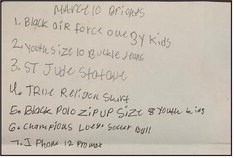 March 10 Origins
1. Black air force one 3y kids
2. Youth size 10 Buckle Jeans
3. ST Jude Statawe
4. True Religon Shirt
5. Black Polo zip up size 8 youth kids
6. Champions Soccer Ball
7. I Phone 12 Pro max